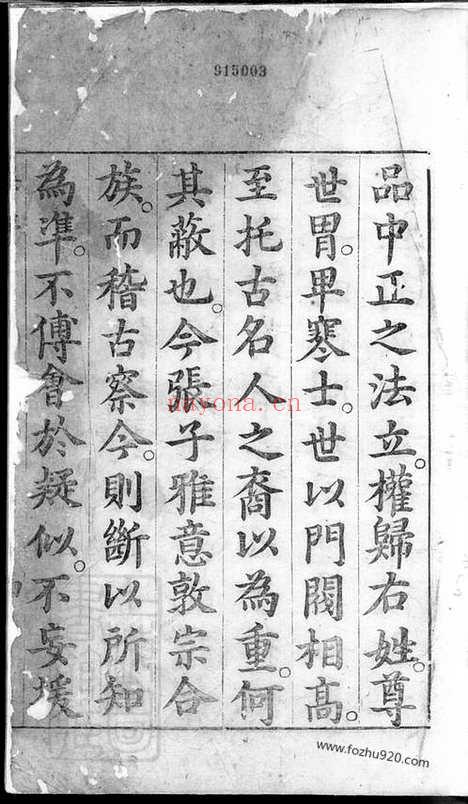 915003
品中正之法立。權歸右姓。尊
世胄。卑寒士。世以門閥相高。
至托古名人之裔以為重。何
其蔽也。今張子雅意敦宗合
族。而稽古察今。則斷以所知
為準。不傅會於疑似。不妄援
nayona.cn
www.fozhu920.com